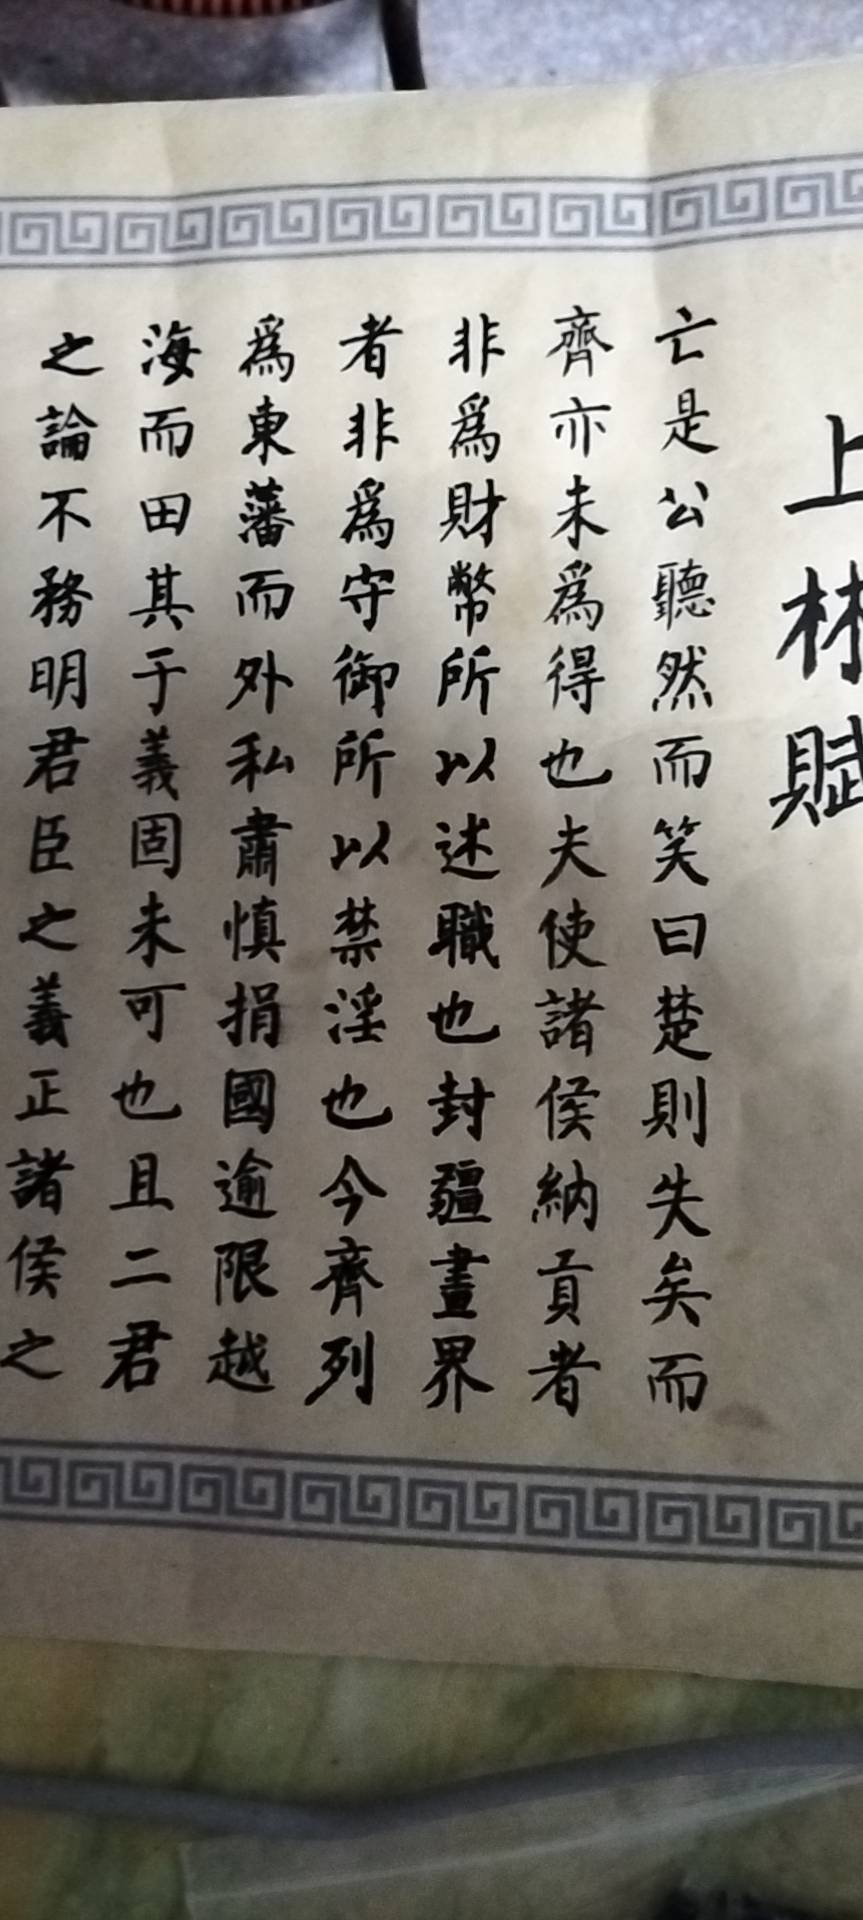 上林賦
亡是公聽然而笑曰楚則失矣而
齊亦未為得也夫使諸侯納貢者
非為財幣所以述職也封疆畫界
者非為守御所以禁淫也今齊列
為東藩而外私肅慎捐國逾限越
海而田其于義固未可也且二君
之論不務明君臣之義正諸侯之